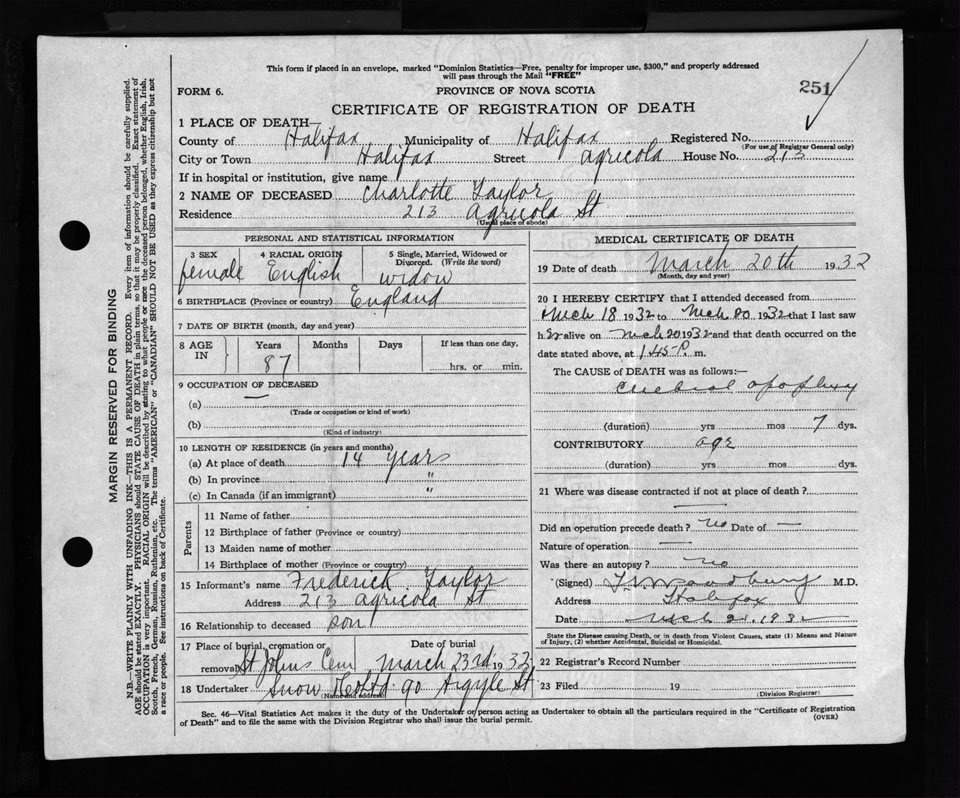 This form if placed in an envelope, marked "Dominion Statistics—Free, penalty for improper use, $300," and properly addressed
will pass through the Mail "FREE"
FORM 6.
PROVINCE OF NOVA SCOTIA
251
CERTIFICATE OF REGISTRATION OF DEATH
1 PLACE OF DEATH—
County of Halifax Municipality of Halifax Registered No.
(For use of Registrar General only)
City or Town Halifax Street Agricola House No. 213
If in hospital or institution, give name
2 NAME OF DECEASED Charlotte Taylor
Residence 213 Agricola St
(Usual place of abode)
PERSONAL AND STATISTICAL INFORMATION
3 SEX 4 RACIAL ORIGIN 5 Single, Married, Widowed or
Divorced. (Write the word)
female English widow
6 BIRTHPLACE (Province or country) England
7 DATE OF BIRTH (month, day and year)
8 AGE IN Years Months Days If less than one day,
87 hrs. or min.
9 OCCUPATION OF DECEASED
(a) —
(Trade or occupation or kind of work)
(b)
(Kind of industry)
10 LENGTH OF RESIDENCE (in years and months)
(a) At place of death 14 years
(b) In province "
(c) In Canada (if an immigrant) "
Parents
11 Name of father
12 Birthplace of father (Province or country)
13 Maiden name of mother
14 Birthplace of mother (Province or country)
15 Informant's name Frederick Taylor
Address 213 Agricola St
16 Relationship to deceased son
17 Place of burial, cremation or Date of burial
removal St Johns Cem March 23rd 1932
18 Undertaker Snow & Co Ltd 90 Argyle St
(Name and address)
MEDICAL CERTIFICATE OF DEATH
19 Date of death March 20th 1932
(Month, day and year)
20 I HEREBY CERTIFY that I attended deceased from
Mch 18 1932 to Mch 20 1932 that I last saw
h er alive on Mch 20 1932 and that death occurred on the
date stated above, at 1.45 P. m.
The CAUSE of DEATH was as follows:—
Cerebral apoplexy
(duration) yrs mos 7 dys.
CONTRIBUTORY age
(duration) yrs mos dys.
21 Where was disease contracted if not at place of death?
—
Did an operation precede death? no Date of —
Nature of operation —
Was there an autopsy? no
(Signed) Woodbury M.D.
Address Halifax
Date Mch 21, 1932
State the Disease causing Death, or in death from Violent Causes, state (1) Means and Nature
of Injury, (2) whether Accidental, Suicidal or Homicidal.
22 Registrar's Record Number
23 Filed 19
(Division Registrar)
Sec. 46—Vital Statistics Act makes it the duty of the Undertaker or person acting as Undertaker to obtain all the particulars required in the "Certificate of Registration
of Death" and to file the same with the Division Registrar who shall issue the burial permit.
(OVER)
MARGIN RESERVED FOR BINDING
N.B.—WRITE PLAINLY WITH UNFADING INK—THIS IS A PERMANENT RECORD. Every item of information should be carefully supplied.
AGE should be stated EXACTLY. PHYSICIANS should STATE CAUSE OF DEATH in plain terms, so that it may be properly classified. Exact statement of
OCCUPATION is very important. RACIAL ORIGIN will be described by stating to what people or race the deceased person belonged, whether English, Irish,
Scotch, French, German, Russian, Ruthenian, etc. The terms "AMERICAN" or "CANADIAN" SHOULD NOT BE USED as they express citizenship but not
a race or people. See instructions on back of Certificate.